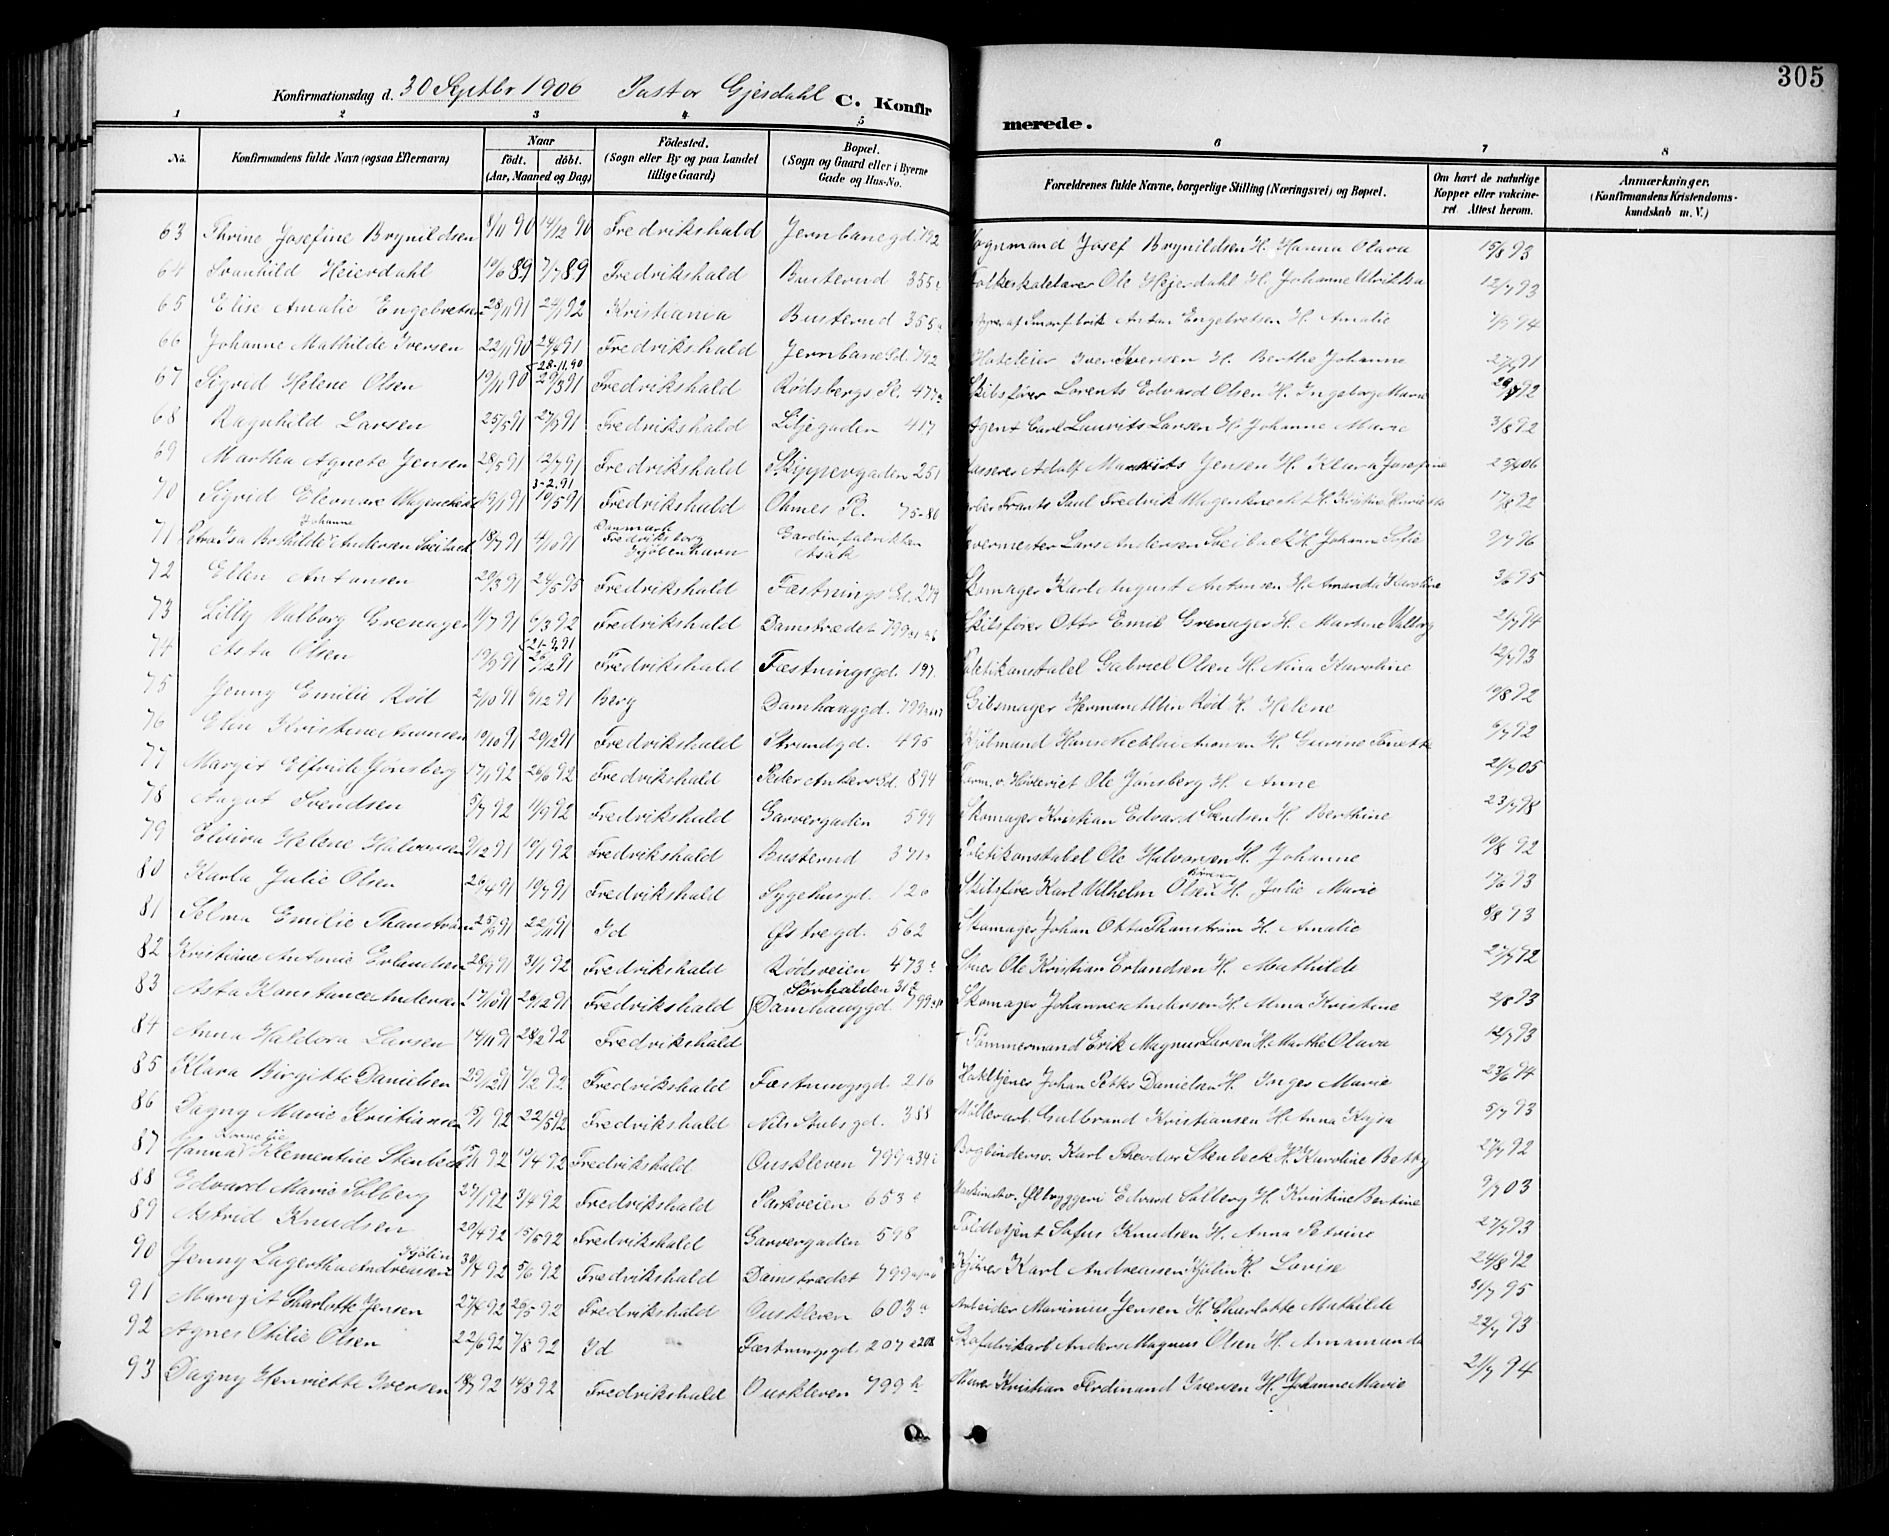 305
Konfirmationsdag d. 30 Septbr 1906 Pastor Gjesdahl C. Konfir merede.
1 2 3 4 5 6 7 8
No. Konfirmandens fulde Navn (ogsaa Efternavn) Naar født. døbt. (Aar, Maaned og Dag) Födested. (Sogn eller By og paa Landet tillige Gaard) Bopæl. (Sogn og Gaard eller i Byerne Gade og Hus-No. Forældrenes fulde Navne, borgerlige Stilling (Næringsvei) og Bopæl. Om havt de naturlige Kopper eller vakcineret. Attest herom. Anmærkninger. (Konfirmandens Kristendomskundskab m. V.)
63 Thrine Josefine Brynildsen 8/11 90 14/12 90 Fredrikshald Jernbanegd. 792 Josef Brynildsen H. Hanna Olava 15/8 93
64 Svanhild Heierdahl 19/6 89 7/7 89 Fredrikshald Busterud 355 Folkeskolelærer Ole Hejerdahl H. Johanne Ulrikka 12/7 93
65 Elise Amalie Engebretsen 28/11 91 24/1 92 Kristiania Busterud 355 Anton Engebretsen H. Amalie
66 Johanne Mathilde Iversen 22/11 90 24/4 91 Fredrikshald Jernbane Gd. 792 Iver Iversen H. Berthe Johanne
67 Sigrid Helene Olsen 19/11 90 28-11.90 29/3 91 Fredrikshald Rødsbergs Pl. 477 Skibsfører Lorents Edvard Olsen H. Ingeborg Marie
68 Ragnhild Larsen 25/5 91 27/9 91 Fredrikshald Liljegaden 417 Agent Carl Laurits Larsen H. Johanne Marie 3/8 92
69 Martha Agnete Jensen 28/5 91 12/7 91 Fredrikshald Skippergaden 251 Kasserer Adolf Mauritz Jensen H. Klara Josefine
70 Sigrid Eleonore Wagenknecht 19/1 91 3-2.91 10/5 91 Fredrikshald Ohmes Pl. 75-80 Frants Paul Fredrik Wagenknecht H. Kristine Henriette 17/8 92
71 Petra Isa Bothilde Johanne Andersen Sveibæck 18/7 91 4/10 91 Danmark Fredriksborg Kjøbenhavn Gardinfabrikken Asak Vævermester Lars Andersen Sveibæck H. Johanne Sofie 9/7 96
72 Ellen Antonsen 29/3 91 24/5 95 Fredrikshald Fæstnings Gd. 279 Skomager Karl August Antonsen H. Amanda Karoline 3/6 95
73 Lilly Valborg Grenager 11/7 91 6/3 92 Fredrikshald Damstrædet 799 Skibsfører Otto Emil Grenager H. Martine Valborg 21/7 94
74 Asta Olsen 19/9 91 26/12 91 Fredrikshald Fæstningsgd. 197 Politikonstabel Gabriel Olsen H. Nina Karoline 12/7 93
75 Jenny Emilie Rød 2/10 91 6/12 91 Berg Damhauggd. 799 Gibsmager Herman Rød H. Helene 19/8 92
76 Elin Kristine Aronsen 19/10 91 20/12 91 Fredrikshald Strandgd. 495 Hans Aronsen H. 6/7 92
77 Margit Elfride Jønsberg 17/1 92 26/6 92 Fredrikshald Peder Ankers Gd. 894 Form. v. Høvleriet Ole Jønsberg H. Anne 21/7 05
78 Aagot Svendsen 5/7 92 11/9 92 Fredrikshald Garvergaden 599 Skomager Kristian Edvard Svendsen H. Berthine 23/7 98
79 Elvira Helene Halvorsen 9/12 91 10/1 92 Fredrikshald Busterud 371 Politikonstabel Ole Halvorsen H. Johanne 19/8 92
80 Karla Julie Olsen 26/4 91 19/7 91 Fredrikshald Sygehusgd. 126 Skibsfører Karl Vilhelm Olsen H. Julie Marie 17/6 93
81 Selma Emilie Thanstrøm 25/9 91 22/11 91 Id Østregd. 562 Skomager Johan Otto Thanstrøm H. Amalie 8/8 93
82 Kristine Antonie Erlandsen 28/9 91 31/1 92 Fredrikshald Rødsveien 473 Ole Kristian Erlandsen H. Mathilde 27/7 92
83 Asta Konstance Andersen 17/10 91 26/12 91 Fredrikshald Sørhalden 31 Damhauggd. 799 Skomager Johannes Andersen H. Alma Kristine 2/8 93
84 Anna Haldora Larsen 14/11 91 28/2 92 Fredrikshald Tømmermand Erik Magnus Larsen H. Marthe Olava 12/7 93
85 Klara Birgitte Danielsen 29/12 91 7/2 92 Fredrikshald Fæstningsgd. 216 Johan Petter Danielsen H. Inger Marie 23/6 94
86 Dagny Marie Kristiansen 15/1 92 22/5 92 Fredrikshald Nils Stubs gd. 388 Møllerarb. Gulbrand Kristiansen H. Anna Kajsa 5/7 93
87 Hanna Kornelie Klementine Stenbeck 15/1 92 10/4 92 Fredrikshald Ouskleven 799 Bogbindersv. Karl Theodor Stenbeck H. Karoline Betty 27/7 92
88 Edvard Marie Solberg 27/1 92 3/4 92 Fredrikshald Parkveien 653 Ølbryggeri Edvard Solberg H. Kristine Bertine 9/7 03
89 Astrid Knudsen 20/4 92 15/5 92 Fredrikshald Garvergaden 598 Toldbetjent Sofus Knudsen H. Anna Petrine 27/7 93
90 Jenny Lagertha Andreassen Kjølin 30/4 92 5/6 92 Fredrikshald Damstrædet 799 Kjører Karl Andreassen Kjølin H. Lovise 24/8 92
91 Margit Charlotte Jensen 27/4 92 26/5 92 Fredrikshald Ouskleven 603 Arbeider Marinius Jensen H. Charlotte Mathilde 31/7 95
92 Agnes Otilie Olsen 22/6 92 7/8 92 Id Fæstningsgd. 207 Skofabrikarb. Anders Magnus Olsen H. 22/7 93
93 Dagny Henriette Iversen 18/7 92 14/8 92 Fredrikshald Ouskleven 799 Murer Kristian Ferdinand Iversen H. Johanne Marie 21/7 94